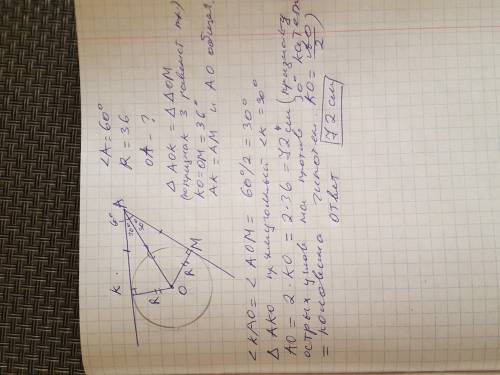 K
60°
A
30°
30°
R
O
R
M
∠A = 60°
R = 36
OA - ?
△AOK = △AOM
(признак 3 равенст тр.)
KO = OM = 36°
AK = AM и AO общая.
∠KAO = ∠AOM = 60°/2 = 30°
△AKO прямоугольный ∠K = 90°
AO = 2 · KO = 2 · 36 = 72 см (признаку
острых углов на против 30° катет
= половина гипотен. KO = AO/2)
ответ 72 см